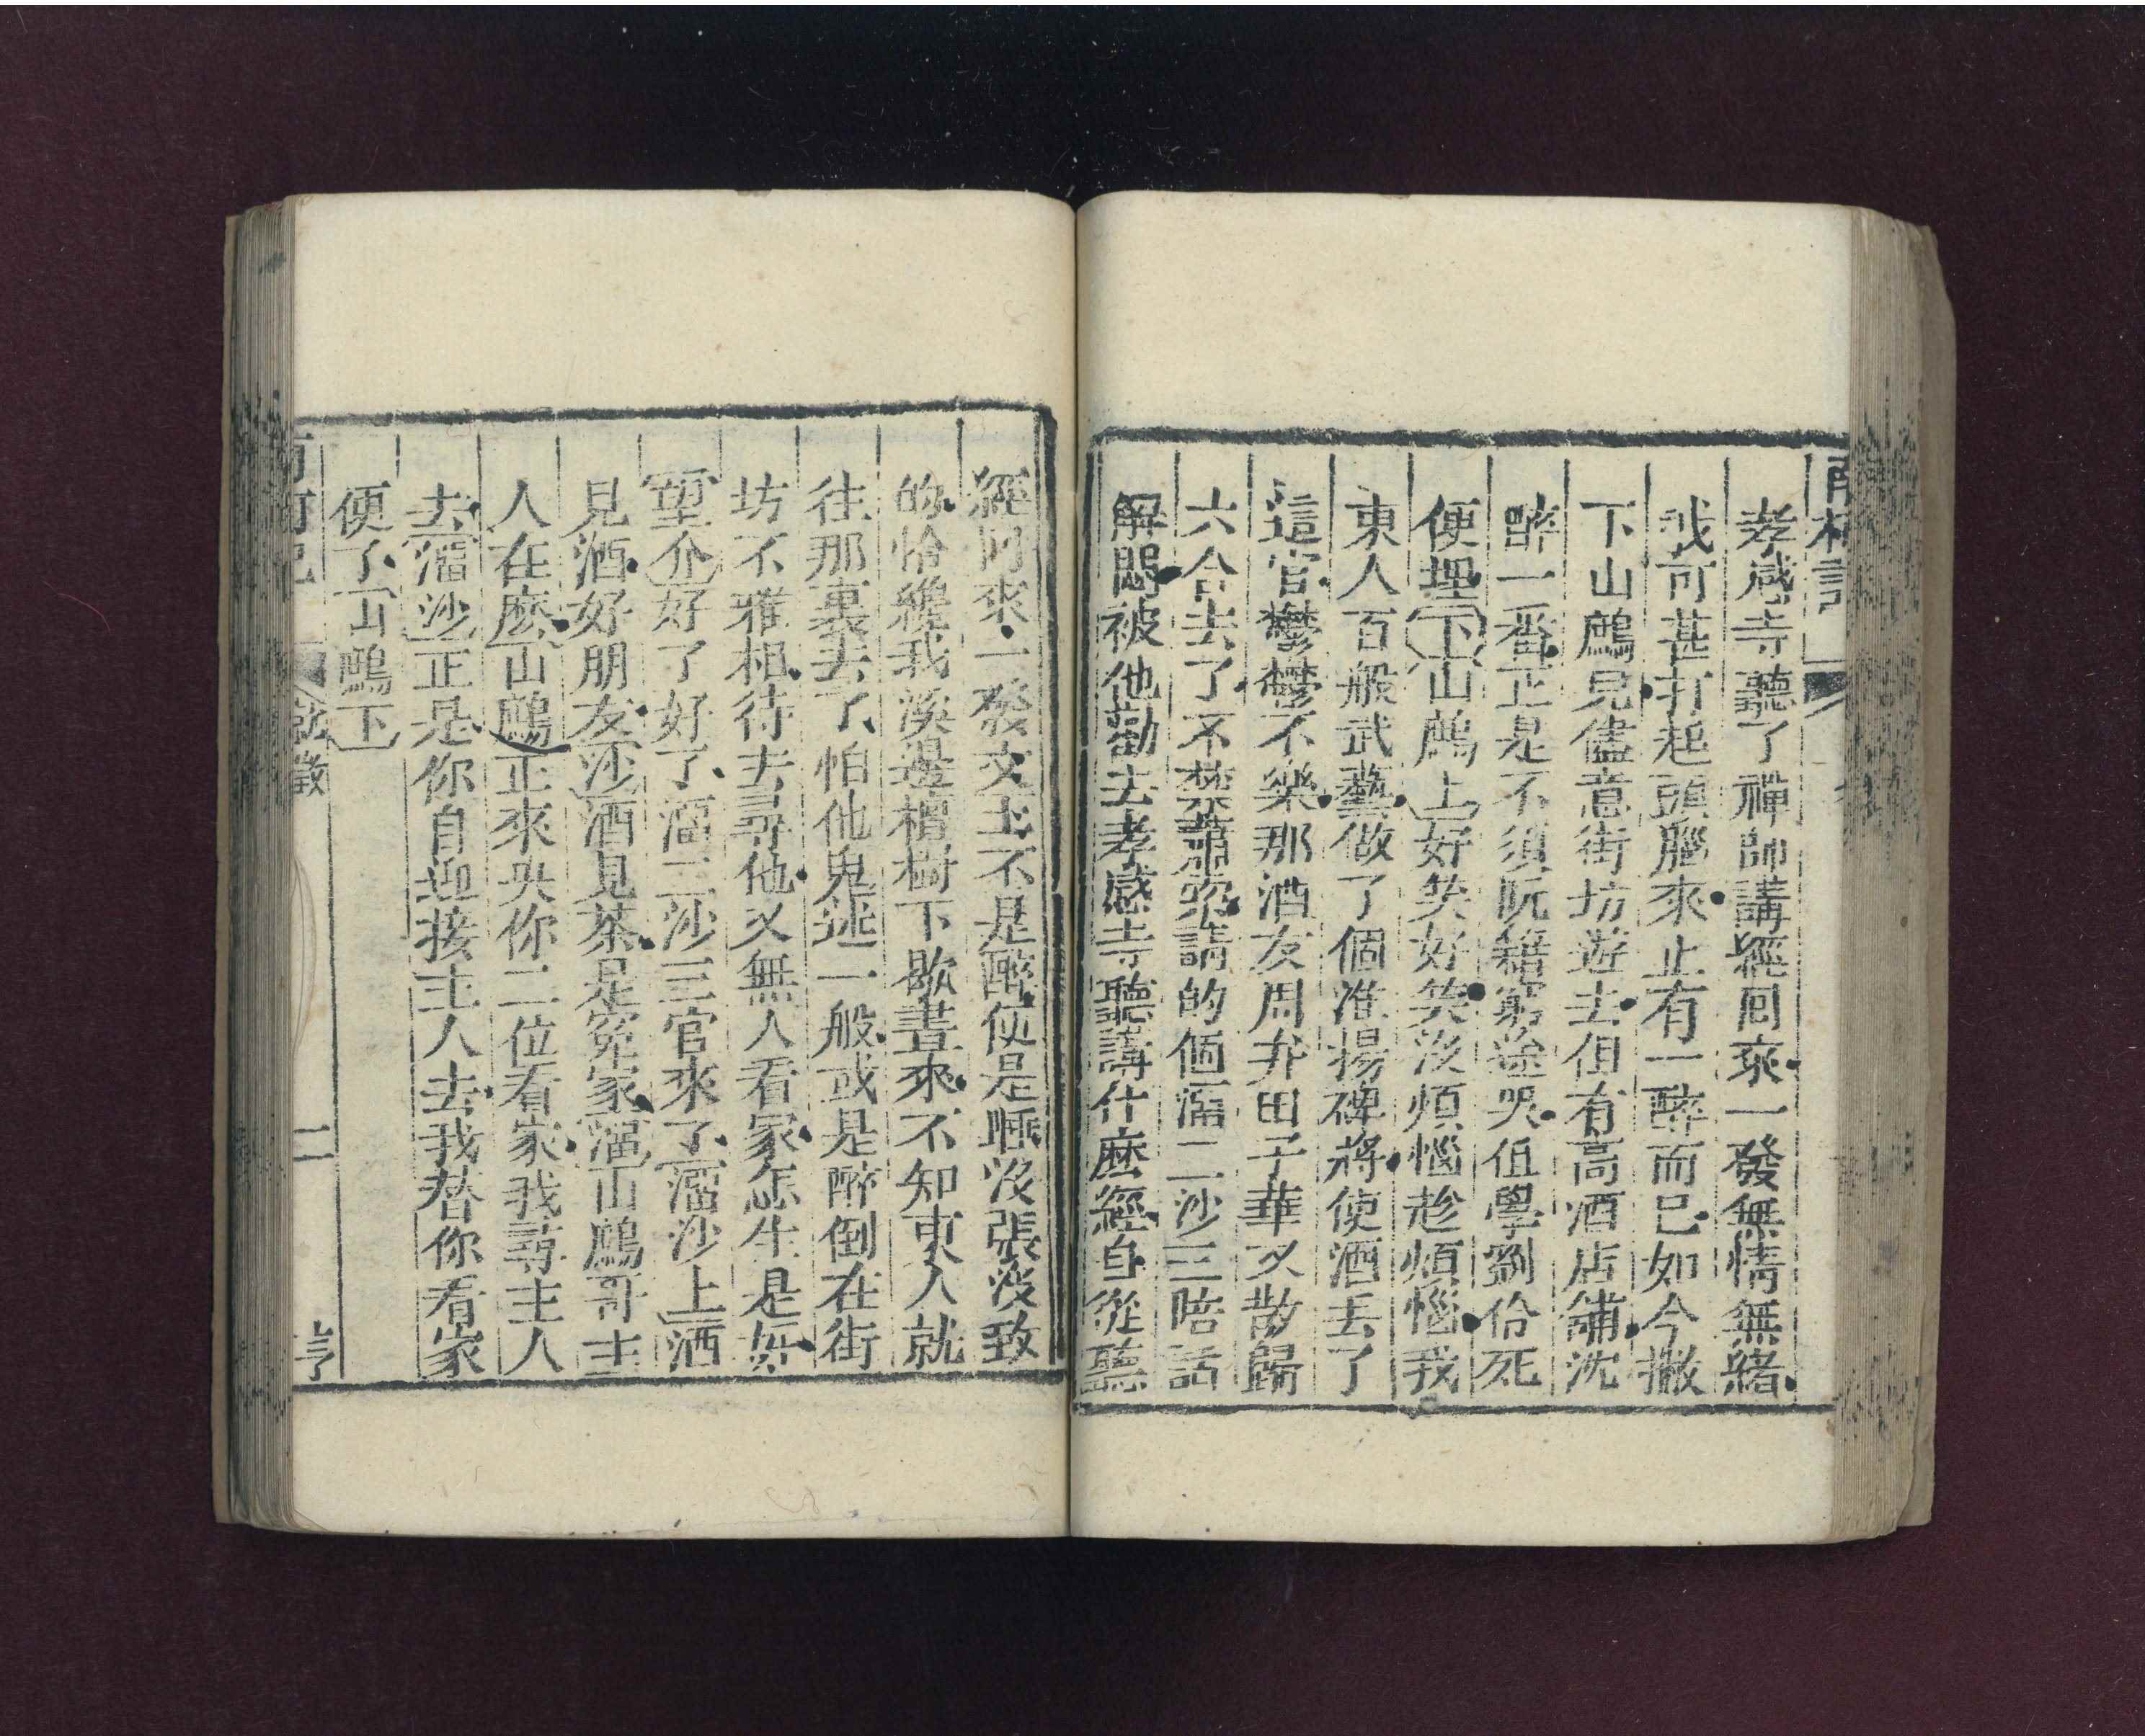 南柯記
孝感寺聽了禪師講經回來一發無情無緒
我可甚打起頭腦來止有一醉而已如今撇
下山鷓兒儘意街坊遊去但有高酒店鋪沈
醉一番正是不須阮籍窮途哭但學劉伶死
便埋下山鷓上好笑好笑沒煩惱趁煩惱我
東人百般武藝做了個淮揚裨將使酒丟了
這官鬱鬱不樂那酒友周弁田子華又散歸
六合去了不禁蕭索請的個溜二沙三陪話
解悶被他勸去孝感寺聽講什麽經自從聽
經回來一發交玉不是醉便是睡沒張沒致
的恰纔我溪邊檀樹下歇晝來不知東人就
往那裏去了怕他鬼迷一般或是醉倒在街
坊不雅相待去尋他又無人看家怎生是好
望介好了好了溜二沙三官來了溜沙上洒
見酒好朋友沙酒見茶是寃家溜山鷓哥主
人在麽山鷓正來央你二位看家我尋主人
去溜沙正是你自迎接主人去我替你看家
便了山鷓下
南柯記
二